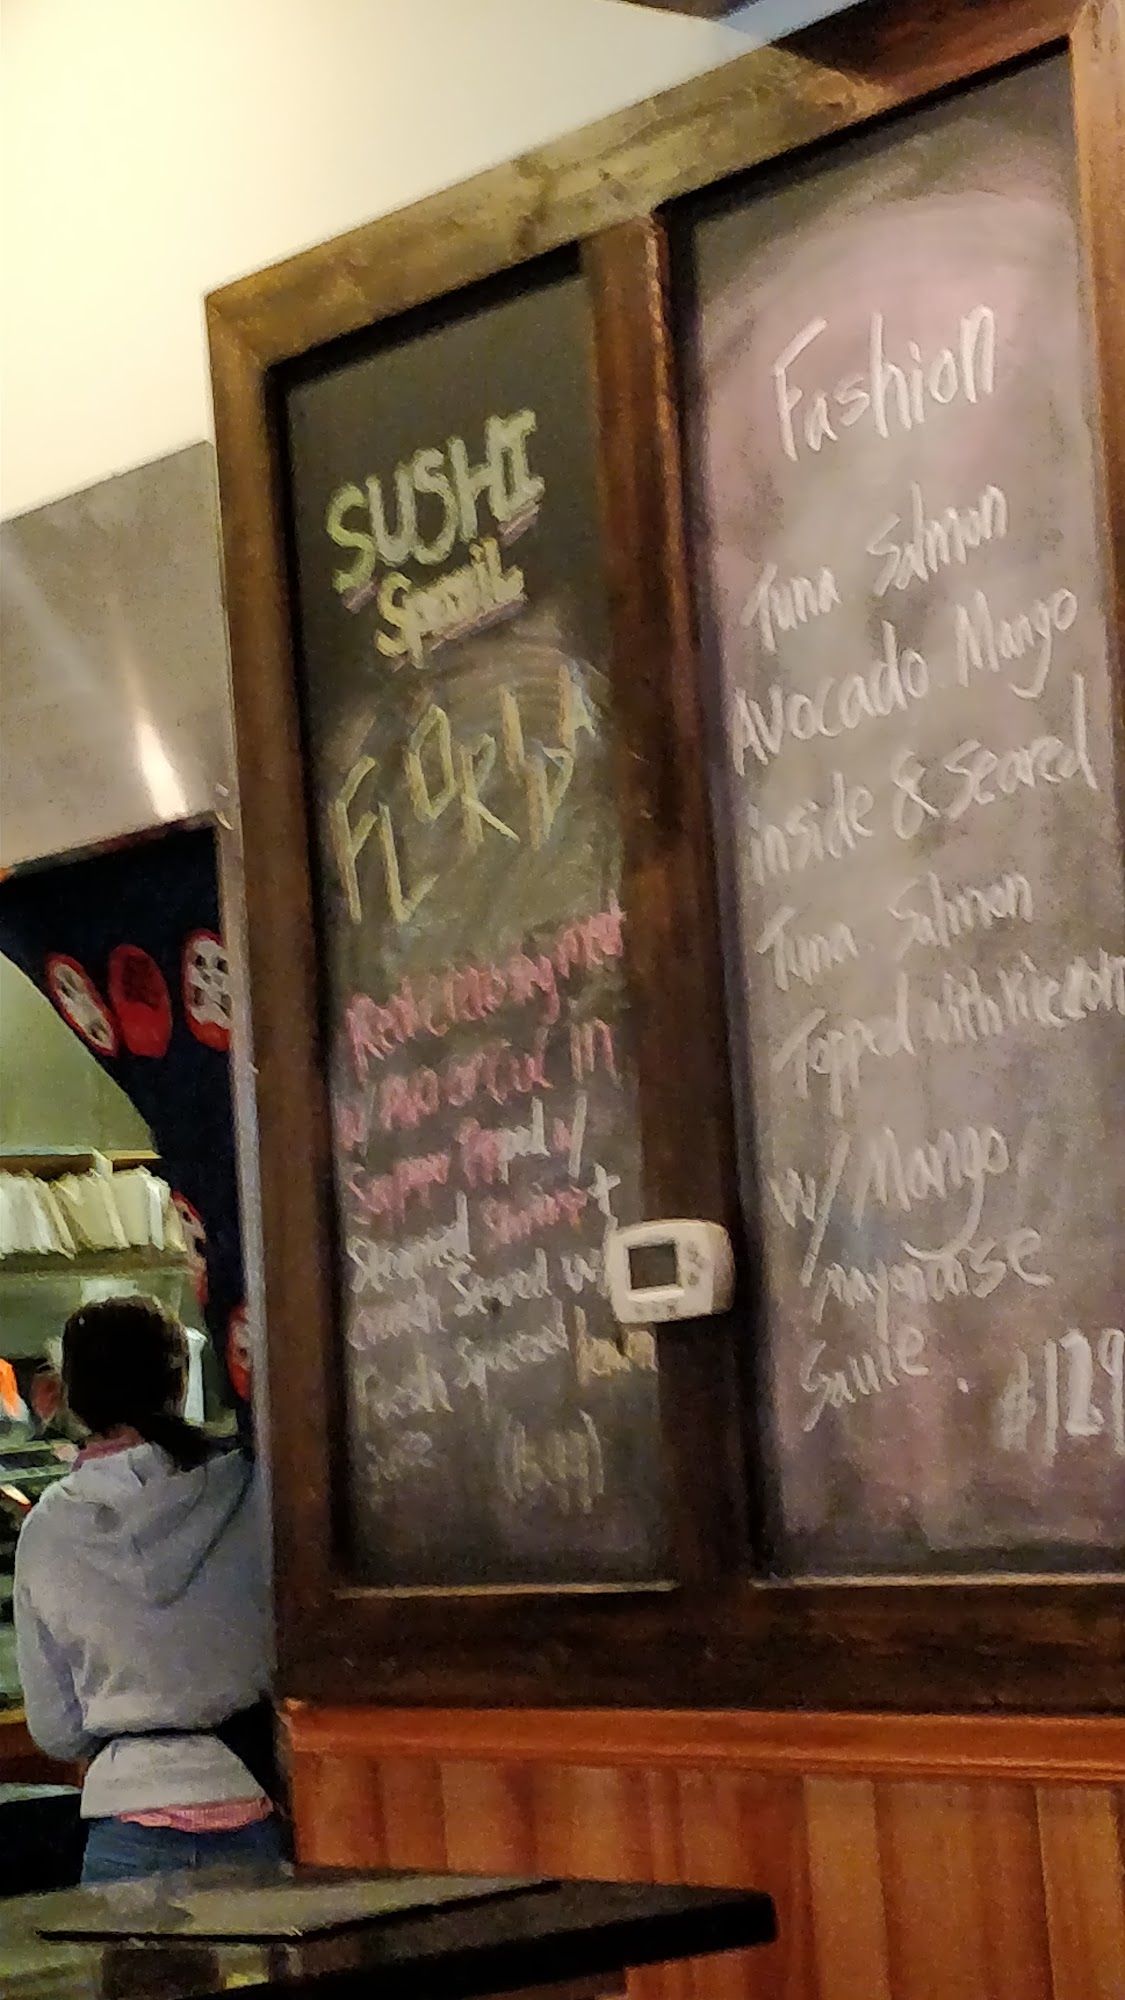 SUSHI
Special
FLORIDA
w/ avocado in
Pepper Topped w/
Steamed Shrimp +
crunch Served w/
Fresh Squeezed lemon
juice
Fashion
Tuna Salmon
Avocado Mango
inside & seared
Tuna Salmon
Topped with
w/ Mango
mayonaise
Sauce. $12.9